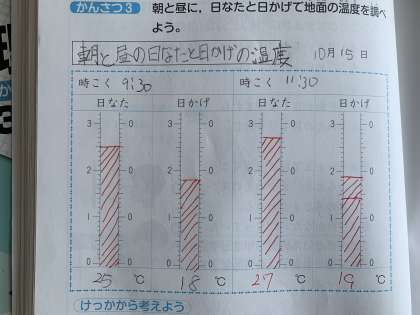 かんさつ3 朝と昼に，日なたと日かげで地面の温度を調べ
よう。
朝と昼の日なたと日かげの温度 10月15日
時こく 9:30 時こく 11:30
日なた 日かげ 日なた 日かげ
3 0 3 0 3 0 3 0
2 0 2 0 2 0 2 0
1 0 1 0 1 0 1 0
0 0 0 0 0 0 0 0
25 ℃ 18 ℃ 27 ℃ 19 ℃
けっかから考えよう